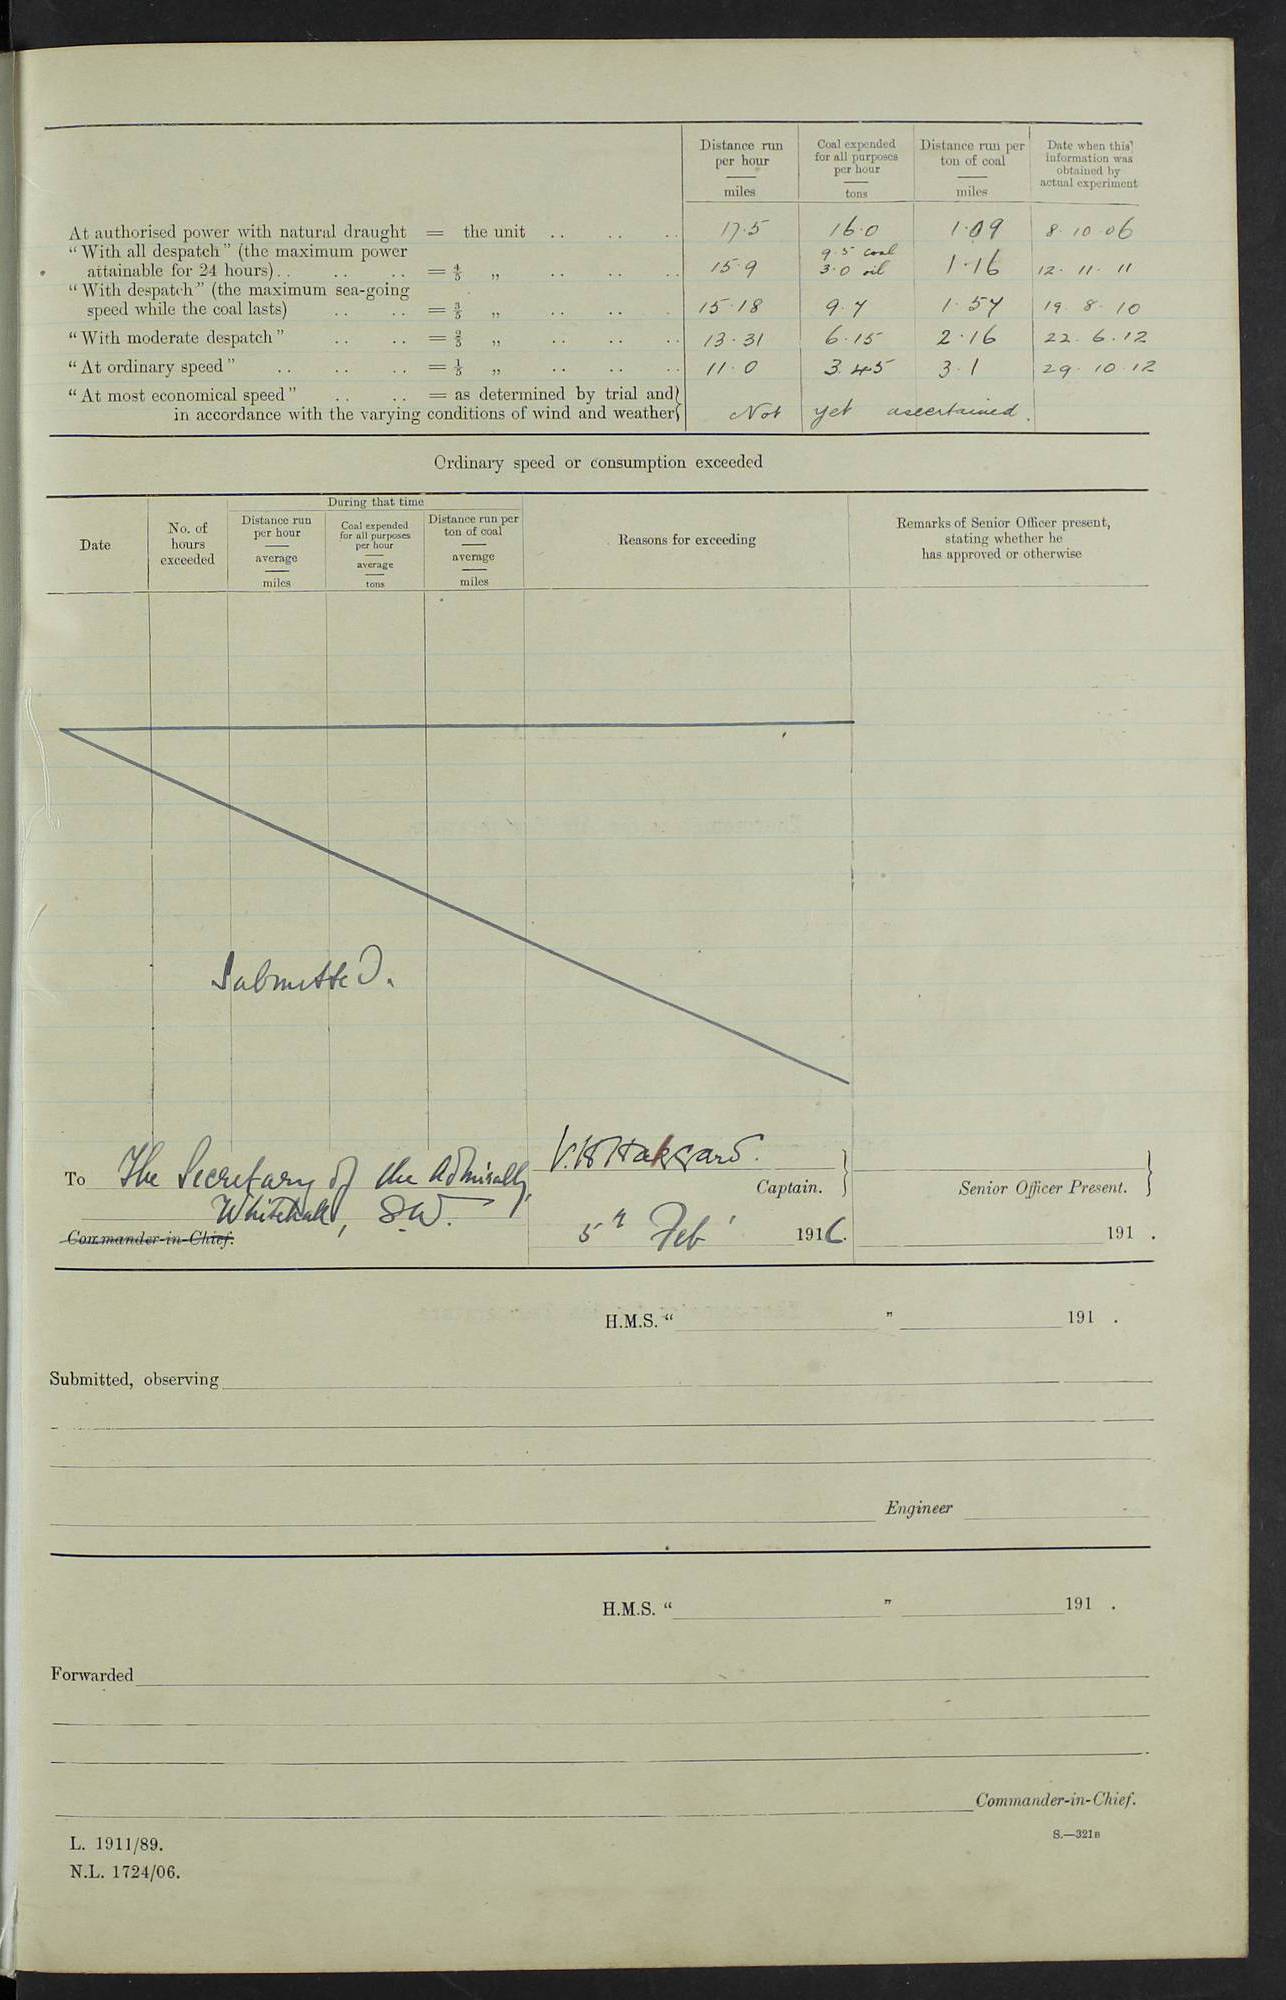 Distance run per hour — miles
Coal expended for all purposes per hour — tons
Distance run per ton of coal — miles
Date when this information was obtained by actual experiment
At authorised power with natural draught = the unit .. .. .. 17·5 16·0 1·09 8·10·06
"With all despatch" (the maximum power 9·5 coal
attainable for 24 hours).. .. .. = 4/5 „ .. .. .. 15·9 3·0 oil 1·16 12·11·11
"With despatch" (the maximum sea-going
speed while the coal lasts) .. .. = 3/5 „ .. .. .. 15·18 9·7 1·57 19·8·10
"With moderate despatch" .. .. = 2/5 „ .. .. .. 13·31 6·15 2·16 22·6·12
"At ordinary speed" .. .. .. = 1/5 „ .. .. .. 11·0 3·45 3·1 29·10·12
"At most economical speed" .. .. = as determined by trial and
in accordance with the varying conditions of wind and weather Not yet ascertained.
Ordinary speed or consumption exceeded
Date
No. of hours exceeded
During that time
Distance run per hour — average — miles
Coal expended for all purposes per hour — average — tons
Distance run per ton of coal — average — miles
Reasons for exceeding
Remarks of Senior Officer present, stating whether he has approved or otherwise
Submitted.
To The Secretary of the Admiralty,
Whitehall, S.W.
Commander-in-Chief.
V.H. Haggard.
Captain.
5th Feb' 1916.
Senior Officer Present.
191 .
H.M.S. " " 191 .
Submitted, observing
Engineer
H.M.S. " " 191 .
Forwarded
Commander-in-Chief.
S.—321B
L. 1911/89.
N.L. 1724/06.